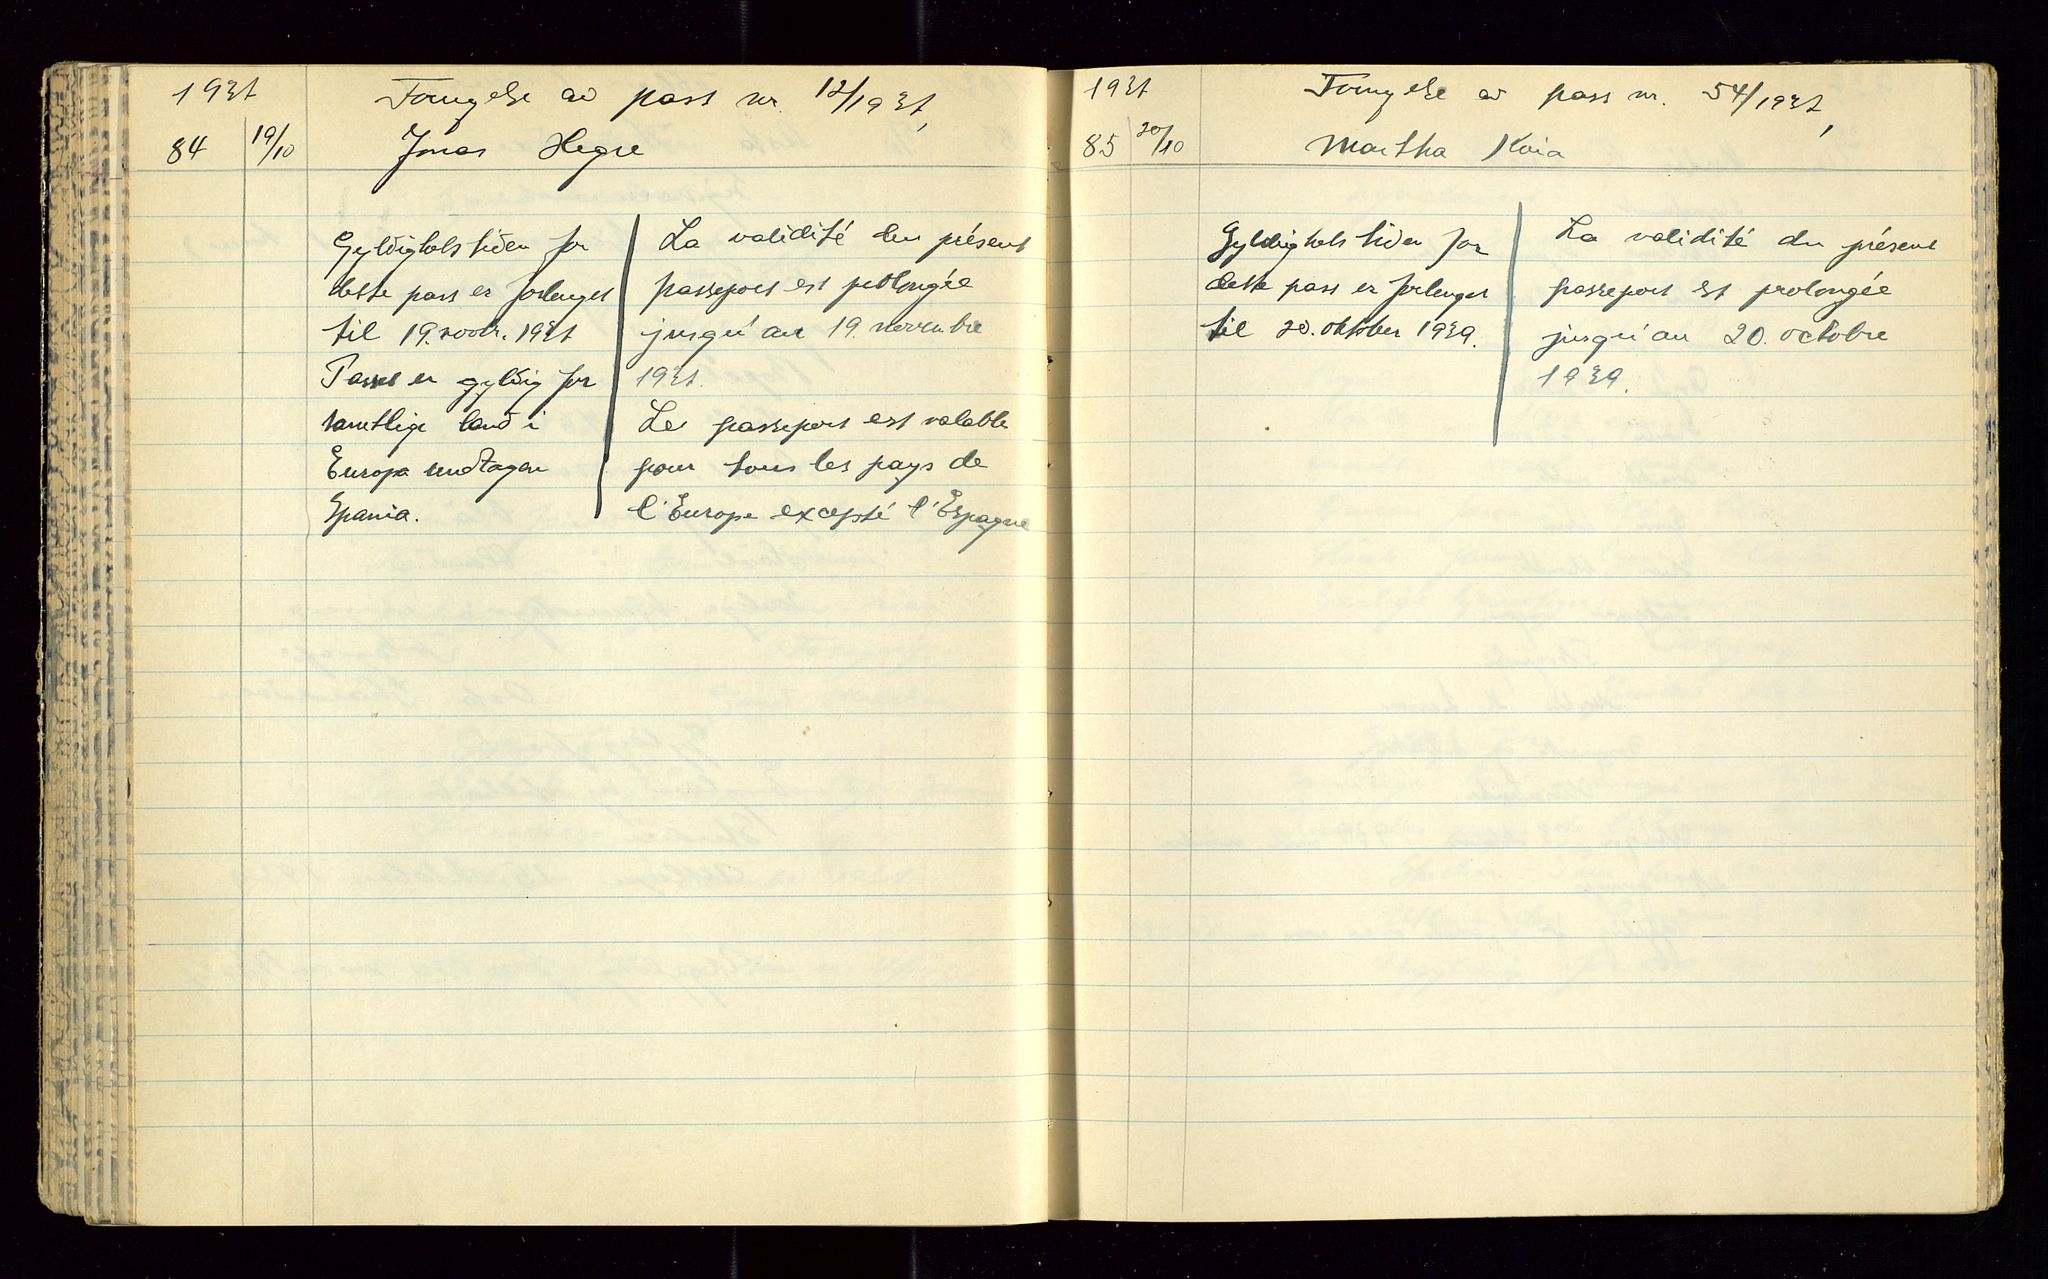 1937
Fornyelse av pass nr. 12/1937,
84 19/10 Jonas Hegre
Gyldighetstiden for
dette pass er forlenget
til 19. novbr. 1937
Passet er gyldig for
samtlige land i
Europa undtagen
Spania.
La validité du présent
passeport est prolongée
jusqu'au 19. novembre
1937.
Le passeport est valable
pour tous les pays de
l'Europe excepté l'Espagne
1937
Fornyelse av pass nr. 54/1937,
85 20/10 Martha Kvia
Gyldighetstiden for
dette pass er forlenget
til 20. oktober 1939.
La validité du présent
passeport est prolongée
jusqu'au 20. octobre
1939.